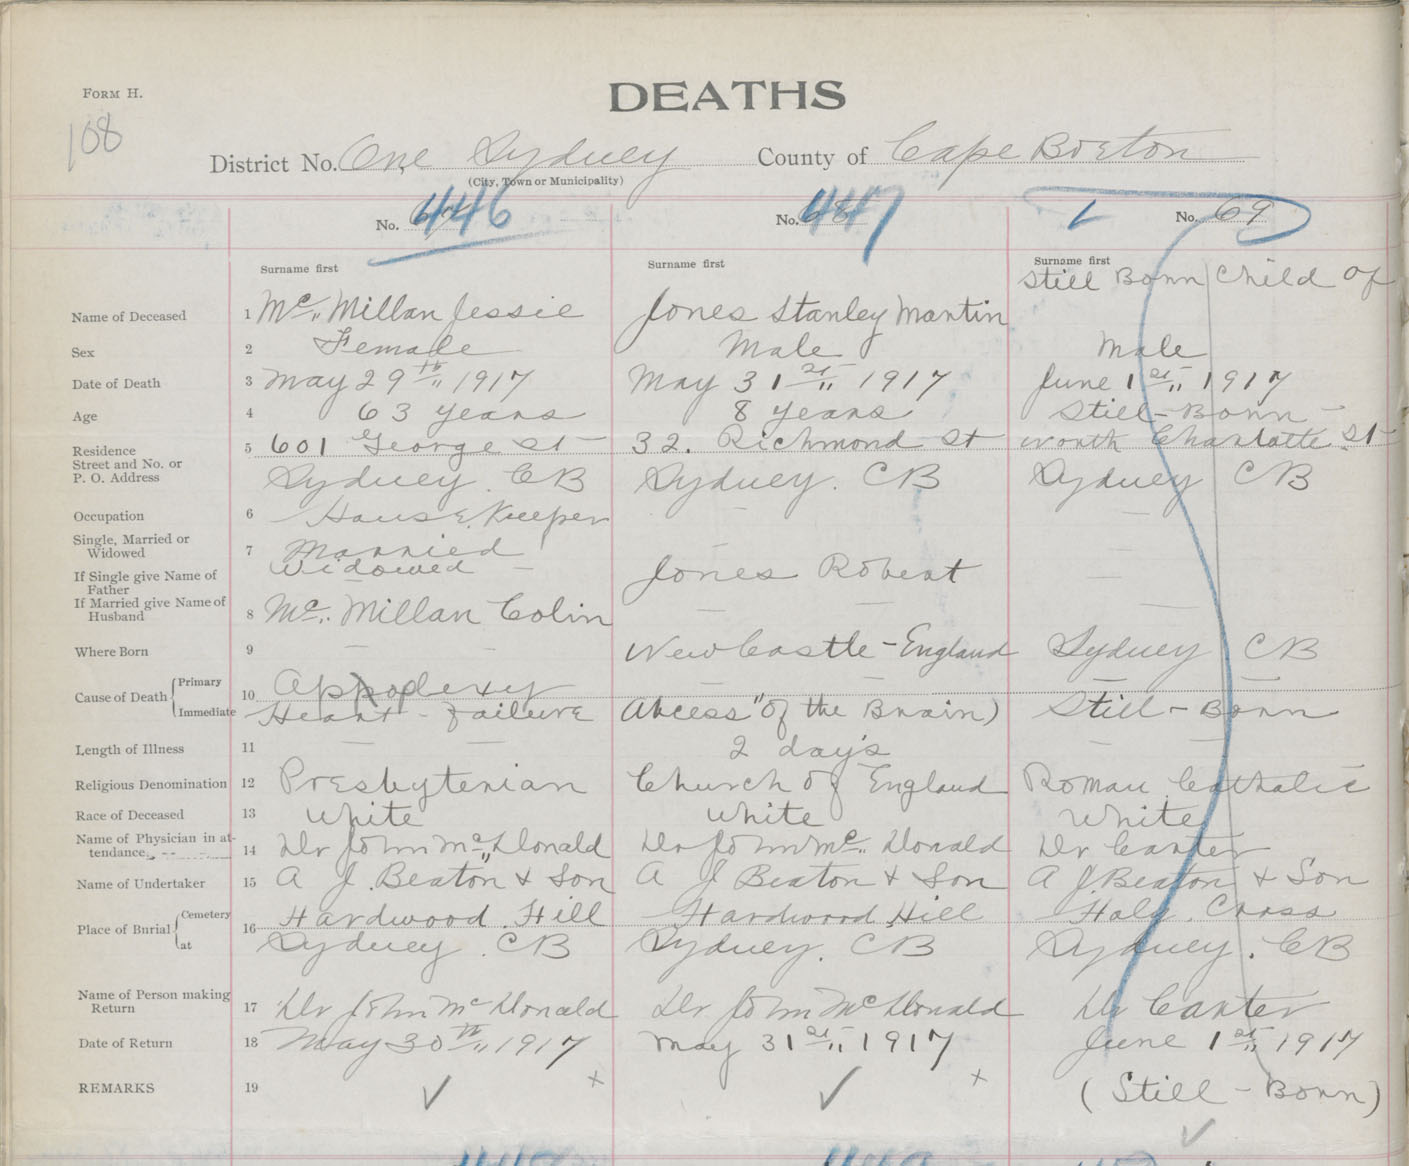 FORM H.
DEATHS
108
District No. One, Sydney County of Cape Breton
(City, Town or Municipality)
No. 446 No. 68 447 No. 69
Surname first Surname first Surname first
Still Born Child of
Name of Deceased 1 Mc Millan Jessie Jones Stanley Martin
Sex 2 Female Male Male
Date of Death 3 May 29th 1917 May 31st 1917 June 1st 1917
Age 4 63 years 8 years Still-Born
Residence 5 601 George St 32. Richmond St North Charlotte St
Street and No. or
P. O. Address Sydney. CB Sydney. CB Sydney CB
Occupation 6 House Keeper
Single, Married or
Widowed 7 Married
Widowed
If Single give Name of
Father Jones Robert
If Married give Name of
Husband 8 Mc. Millan Colin
Where Born 9 New Castle - England Sydney CB
Cause of Death Primary 10 Appoplexy
Immediate Heart - failure Abcess "Of the Brain) Still - Born
Length of Illness 11 2 day's
Religious Denomination 12 Presbyterian Church Of England Roman Catholic
Race of Deceased 13 White White White
Name of Physician in at-
tendance 14 Dr John Mc Donald Dr John Mc Donald Dr Carter
Name of Undertaker 15 A J. Beaton & Son A J Beaton & Son A J. Beaton & Son
Place of Burial Cemetery 16 Hardwood Hill Hardwood Hill Holy Cross
at Sydney. CB Sydney. CB Sydney. CB
Name of Person making
Return 17 Dr John Mc Donald Dr John Mc Donald Dr Carter
Date of Return 18 May 30th 1917 May 31st 1917 June 1st 1917
REMARKS 19 (Still - Born)